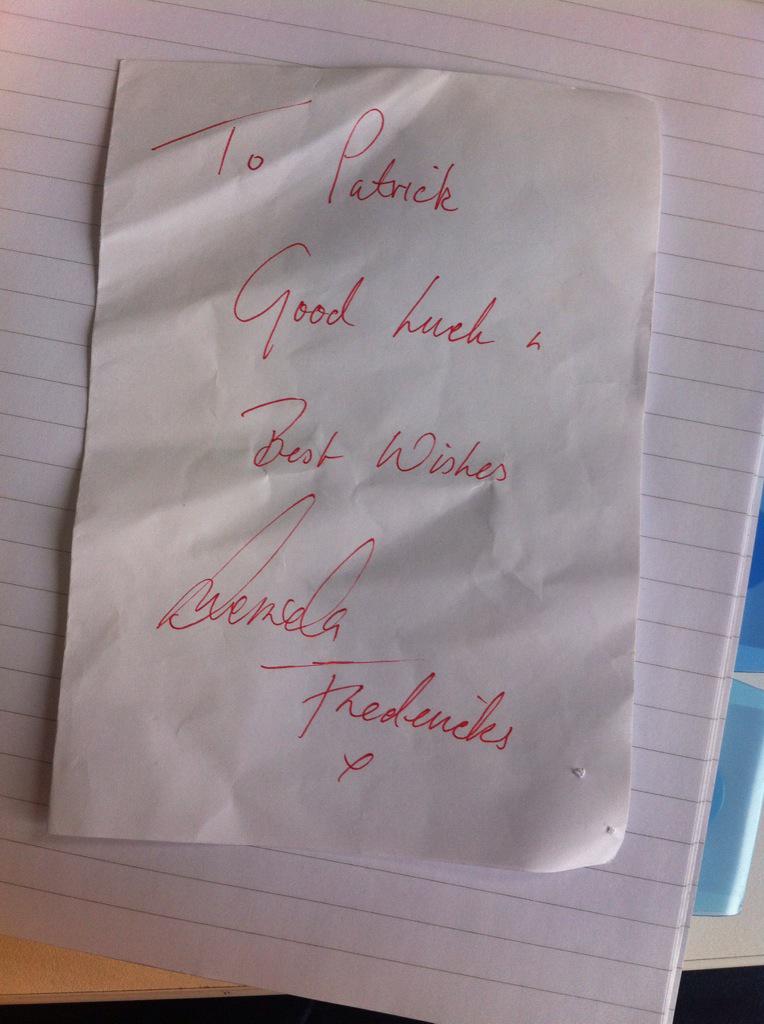 To Patrick
Good Luck &
Best Wishes
Fredericks
x